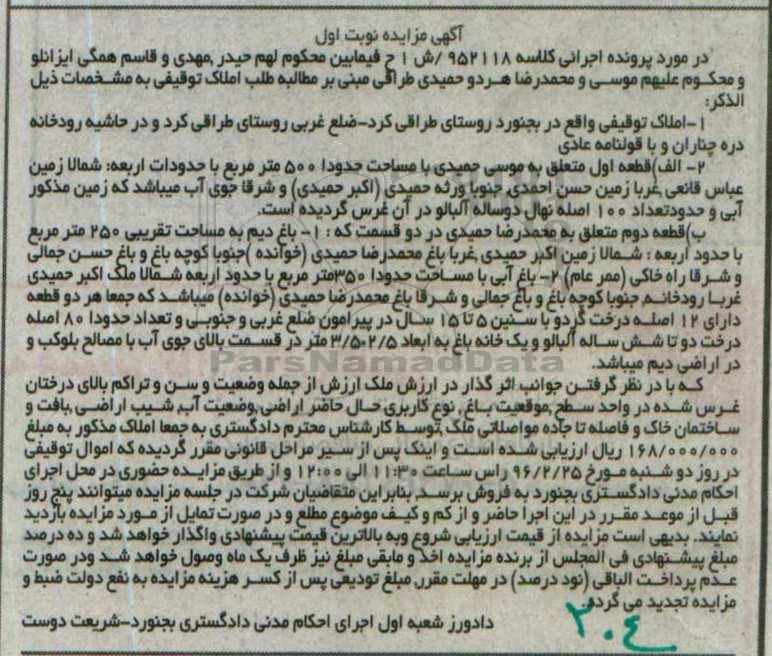 آگهی مزایده نوبت اول
در مورد پرونده اجرائی کلاسه ۹۵۲۱۱۸ /ش ۱ ح فیمابین محکوم لهم حیدر ,مهدی و قاسم همگی ایزانلو
و محکوم علیهم موسی و محمدرضا هردو حمیدی طراقی مبنی بر مطالبه طلب املاک توقیفی به مشخصات ذیل
الذکر:
۱-املاک توقیفی واقع در بجنورد روستای طراقی کرد-ضلع غربی روستای طراقی کرد و در حاشیه رودخانه
دره چناران و با قولنامه عادی
۲- الف)قطعه اول متعلق به موسی حمیدی با مساحت حدودا ۵۰۰ متر مربع با حدودات اربعه: شمالا زمین
عباس قانعی ,غربا زمین حسن احمدی, جنوبا ورثه حمیدی (اکبر حمیدی) و شرقا جوی آب میباشد که زمین مذکور
آبی و حدودتعداد ۱۰۰ اصله نهال دوساله آلبالو در آن غرس گردیده است.
ب)قطعه دوم متعلق به محمدرضا حمیدی در دو قسمت که : ۱- باغ دیم به مساحت تقریبی ۲۵۰ متر مربع
با حدود اربعه : شمالا زمین اکبر حمیدی ,غربا باغ محمدرضا حمیدی (خوانده )جنوبا کوچه باغ و باغ حسن جمالی
و شرقا راه خاکی (ممر عام) ۲- باغ آبی با مساحت حدودا ۳۵۰متر مربع با حدود اربعه شمالا ملک اکبر حمیدی
غربا رودخانه, جنوبا کوچه باغ و باغ جمالی و شرقا باغ محمدرضا حمیدی (خوانده) میباشد که جمعا هر دو قطعه
دارای ۱۲ اصله درخت گردو با سنین ۵ تا ۱۵ سال در پیرامون ضلع غربی و جنوبی و تعداد حدودا ۸۰ اصله
درخت دو تا شش ساله آلبالو و یک خانه باغ به ابعاد ۳/۵۰۲/۵ متر در قسمت بالای جوی آب با مصالح بلوکب و
در اراضی دیم میباشد.
که با در نظر گرفتن جوانب اثر گذار در ارزش ملک ارزش از جمله وضعیت و سن و تراکم بالای درختان
غرس شده در واحد سطح ,موقعیت باغ , نوع کاربری حال حاضر اراضی ,وضعیت آب, شیب اراضی ,بافت و
ساختمان خاک و فاصله تا جاده مواصلاتی ملک ,توسط کارشناس محترم دادگستری به جمعا املاک مذکور به مبلغ
۱۶۸/۰۰۰/۰۰۰ ریال ارزیابی شده است و اینک پس از سیر مراحل قانونی مقرر گردیده که اموال توقیفی
در روز دو شنبه مورخ ۹۶/۲/۲۵ راس ساعت ۱۱:۳۰ الی ۱۲:۰۰ و از طریق مزایده حضوری در محل اجرای
احکام مدنی دادگستری بجنورد به فروش برسد, بنابراین متقاضیان شرکت در جلسه مزایده میتوانند پنج روز
قبل از موعد مقرر در این اجرا حاضر و از کم و کیف موضوع مطلع و در صورت تمایل از مورد مزایده بازدید
نمایند. بدیهی است مزایده از قیمت ارزیابی شروع وبه بالاترین قیمت پیشنهادی واگذار خواهد شد و ده درصد
مبلغ پیشنهادی فی المجلس از برنده مزایده اخذ و مابقی مبلغ نیز ظرف یک ماه وصول خواهد شد ودر صورت
عدم پرداخت الباقی (نود درصد) در مهلت مقرر, مبلغ تودیعی پس از کسر هزینه مزایده به نفع دولت ضبط و
مزایده تجدید می گردد.
دادورز شعبه اول اجرای احکام مدنی دادگستری بجنورد-شریعت دوست
۳۰٤
ParsNamadData